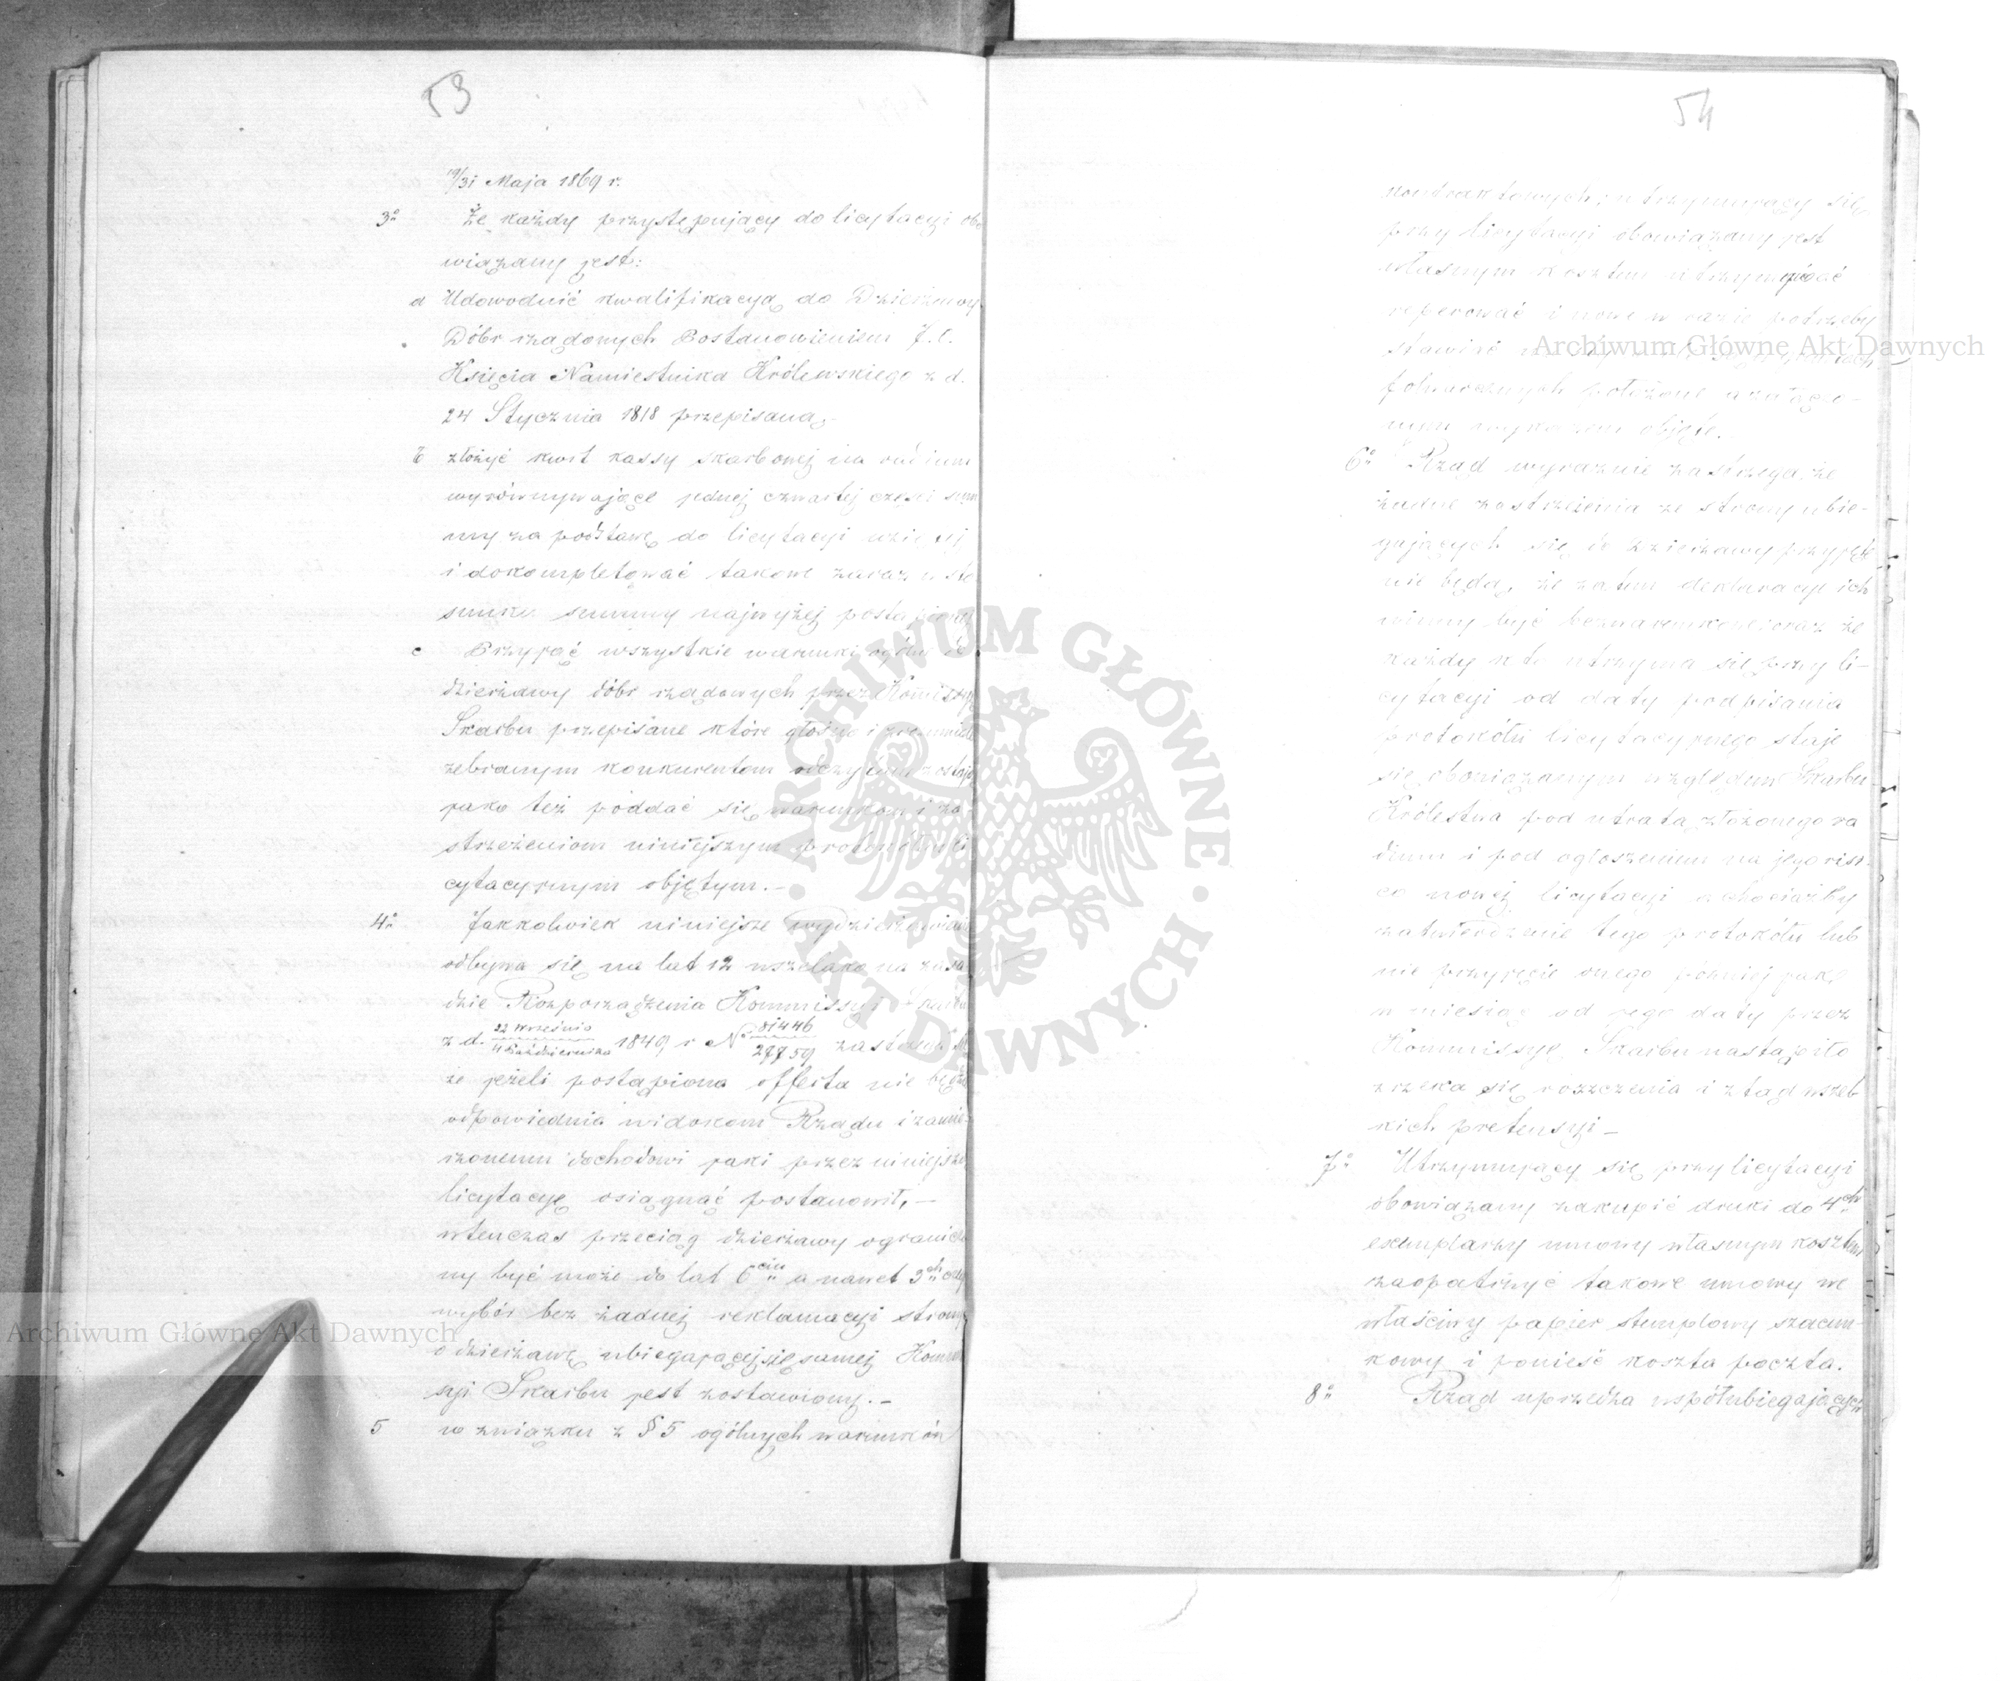 53
19/31 Maja 1869 r.
3o Że każdy przystępujący do licytacyi obo
wiązany jest:
a Udowodnić kwalifikacyą do Dzierżawy
Dóbr rządowych Postanowieniem J. C.
Księcia Namiestnika Królewskiego z d.
24 Stycznia 1818 przepisaną.-
b złożyć kwit kassy skarbowej na vadium
wyrównywające jednej czwartej części sum
my za podstawę do licytacyi wziętej
i dokompletować takowe zaraz w sto
sunku summy najwyżej postąpionej
c Przyjąć wszystkie warunki ogólne do
dzierżawy dóbr rządowych przez Kommissyę
Skarbu przepisane które głośno i zrozumiale
zebranym konkurentom odczytane zostają
jako też poddać się warunkom i za
strzeżeniom niniejszym protokółem li
cytacyjnym objętym.-
4o Jakkolwiek niniejsze wydzierżawienie
odbywa się na lat 12 wszelako na zasa
dzie Rozporządzenia Kommissyi Skarbu
z d. 22 Września / 4 Października 1849 r No 81446 / 27759 zastrzega się
że jeżeli postąpiona offerta nie będzie
odpowiednia widokom Rządu i zamie
rzonemu dochodowi jaki przez niniejszą
licytacyę osiągnąć postanowił,-
wtenczas przeciąg dzierżawy ograniczo
ny być może do lat 6ciu a nawet 3ch czego
wybór bez żadnej reklamacyi strony
o dzierżawę ubiegającej się samej Kommis
syi Skarbu jest zostawiony.-
5 w związku z § 5 ogólnych warunków
54
kontraktowych; utrzymujący się
przy licytacyi obowiązany jest
własnym kosztem utrzymywać
reperować i nowe w razie potrzeby
stawiać
folwarcznych położone a załączo-
nym wykazem objęte.
6o Rząd wyraźnie zastrzega że
żadne zastrzeżenia ze strony ubie-
gających się do Dzierżawy przyjęte
nie będą, że zatem deklaracye ich
winny być bezwarunkowe oraz że
każdy kto utrzyma się przy li-
cytacyi od daty podpisania
protokółu licytacyjnego staje
się obowiązanym względem Skarbu
Królestwa pod utratą złożonego va
dium i pod ogłoszeniem na jego risi-
co nowej licytacyi a chociażby
zatwierdzenie tego protokółu lub
nie przyjęcie onego później jak
w miesiąc od jego daty przez
Kommissyę Skarbu nastąpiło
zrzeka się roszczenia i ztąd wszel
kich pretensyi -
7o Utrzymujący się przy licytacyi
obowiązany zakupić druki do 4ch
exemplarzy umowy własnym kosztem
zaopatrzyć takowe umowy we
właściwy papier stemplowy szacun-
kowy i ponieść koszta poczta.
8o Rząd uprzedza współubiegających
Archiwum Główne Akt Dawnych
Archiwum Główne Akt Dawnych
ARCHIWUM GŁÓWNE · AKT DAWNYCH ·